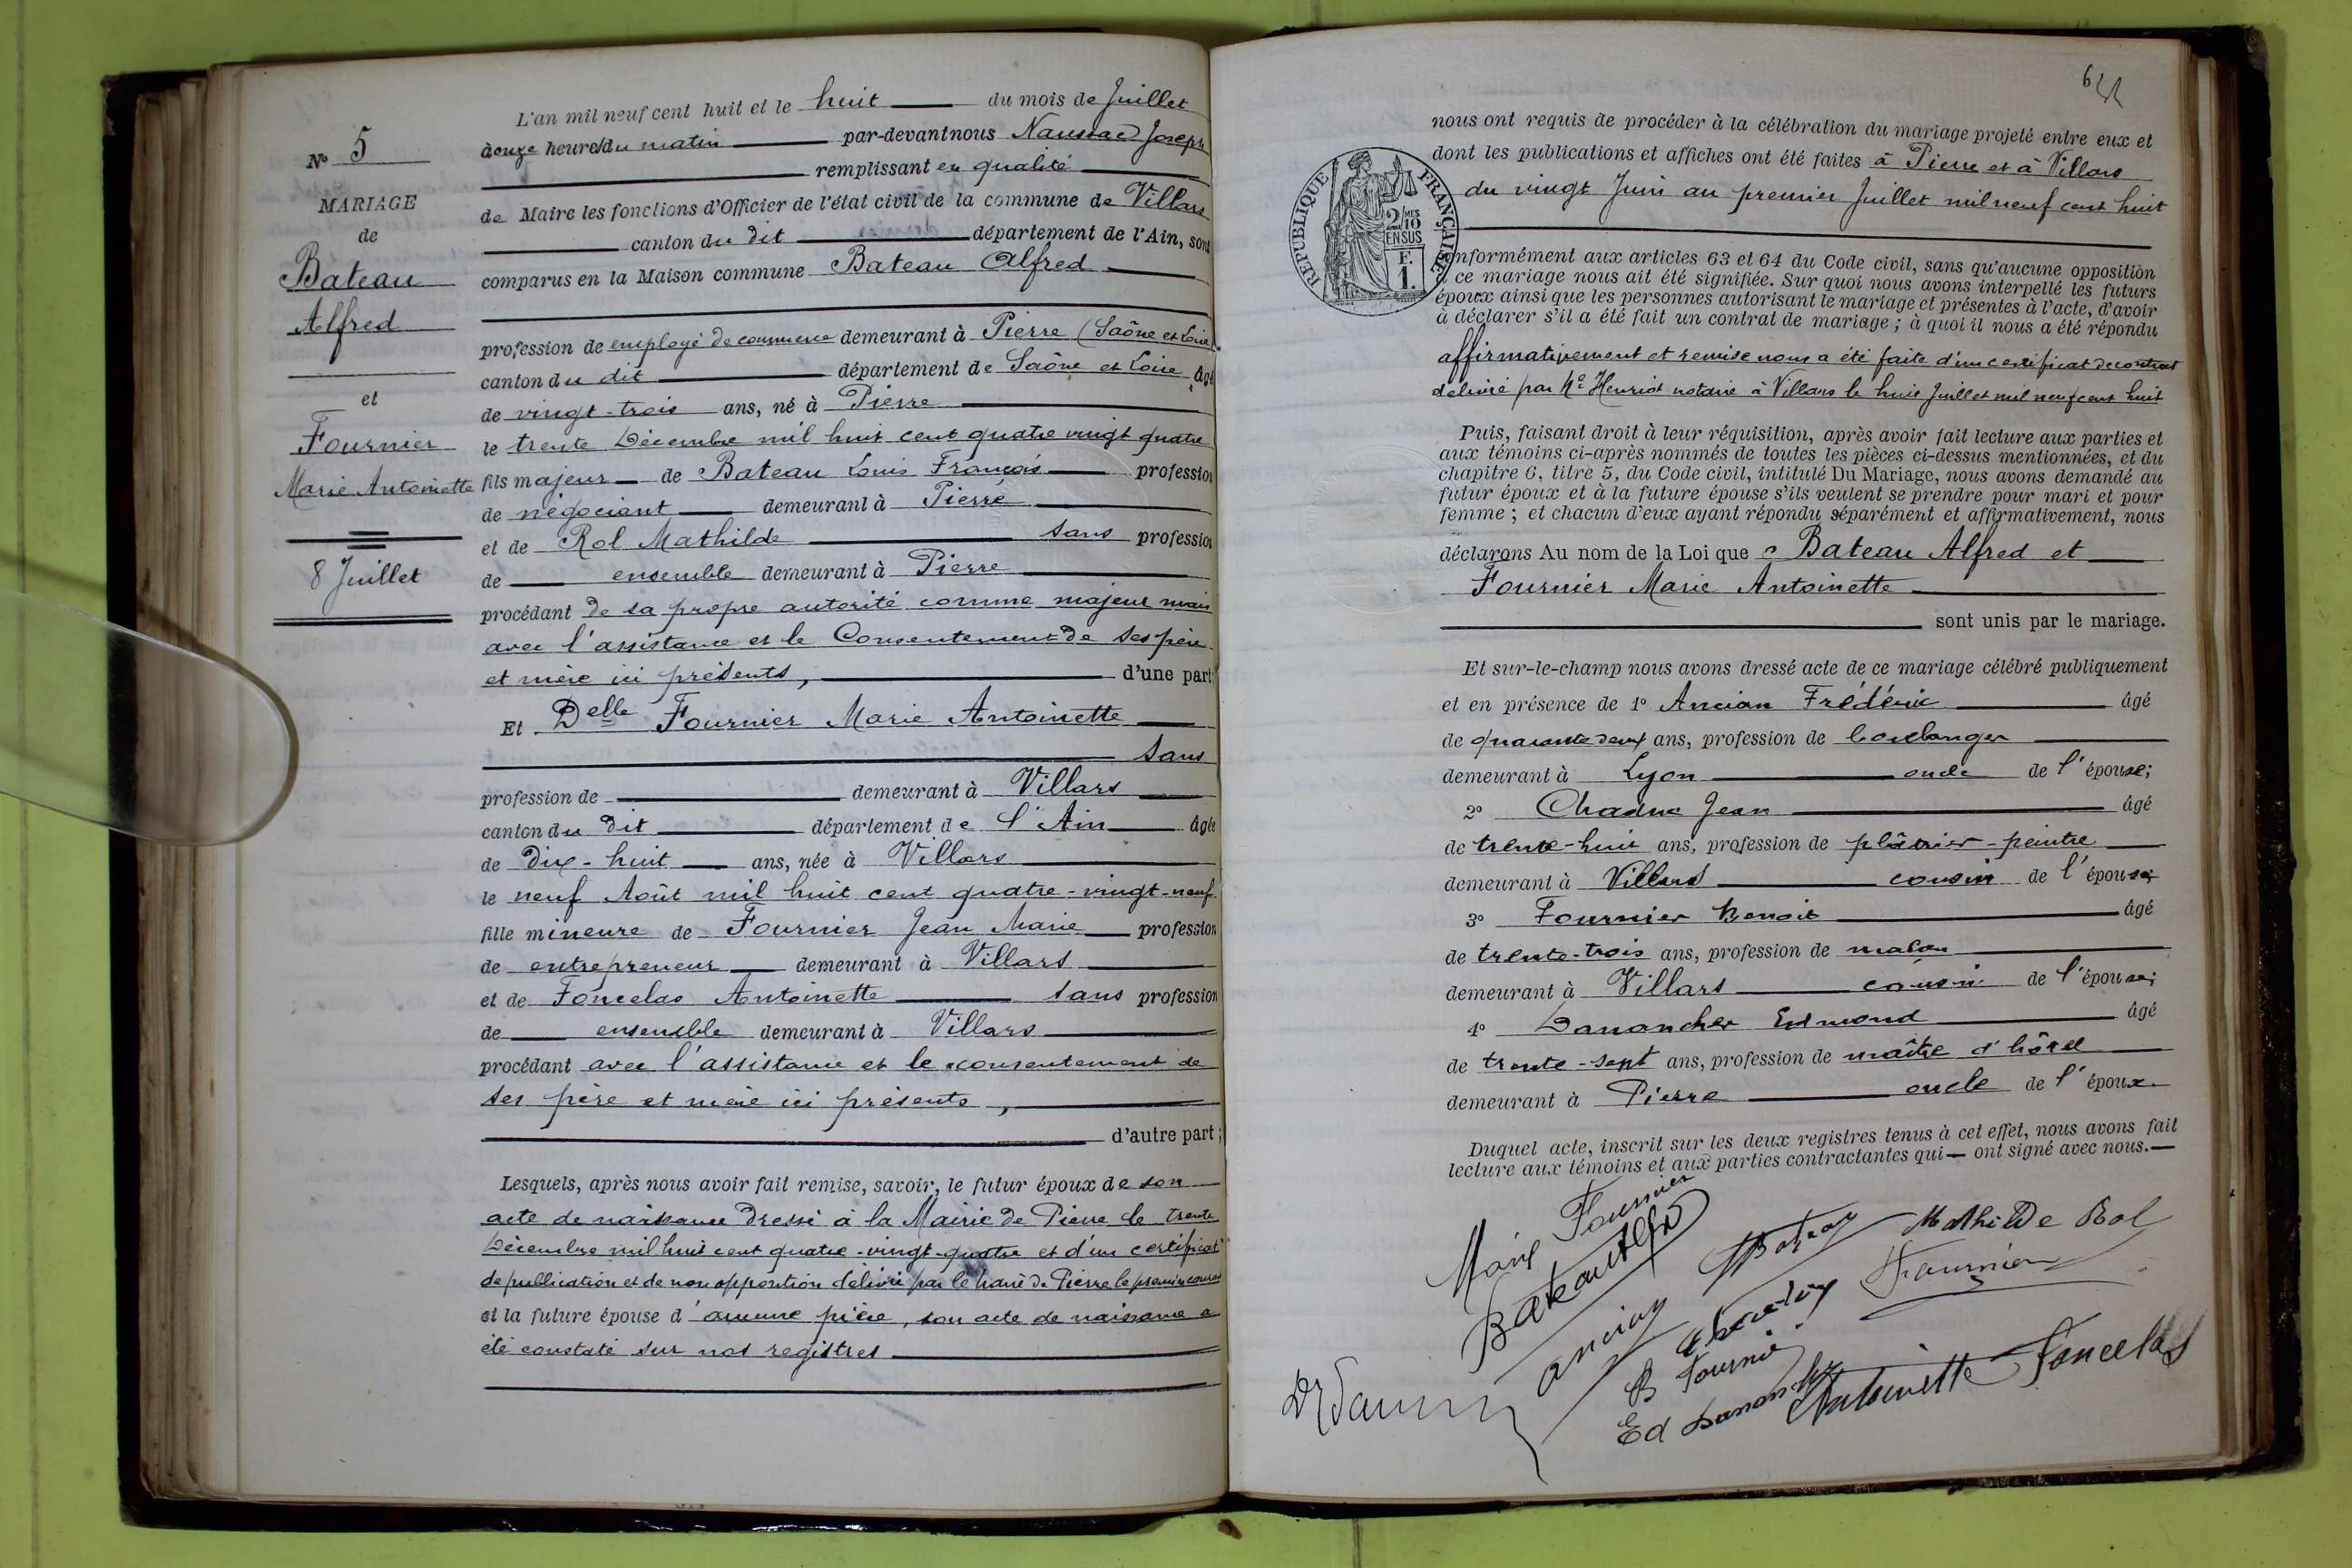 N° 5
MARIAGE
de
Bateau
Alfred
et
Fournier
Marie Antoinette
8 Juillet
L'an mil neuf cent huit et le huit du mois de Juillet
à onze heures du matin par-devant nous Joseph
remplissant en qualité
de Maire les fonctions d'Officier de l'état civil de la commune de Villars
canton du dit département de l'Ain, sont
comparus en la Maison commune Bateau Alfred
profession de employé de commerce demeurant à Pierre (Saône et Loire)
canton du dit département de Saône et Loire âgé
de vingt-trois ans, né à Pierre
le trente Décembre mil huit cent quatre vingt quatre
fils majeur de Bateau Louis François profession
de négociant demeurant à Pierre
et de Rol Mathilde sans profession
de ensemble demeurant à Pierre
procédant de sa propre autorité comme majeur mais
avec l'assistance et le Consentement de ses père
et mère ici présents, d'une part;
Et Delle Fournier Marie Antoinette
sans
profession de demeurant à Villars
canton du dit département de l'Ain âgée
de dix-huit ans, née à Villars
le neuf Août mil huit cent quatre-vingt-neuf
fille mineure de Fournier Jean Marie profession
de entrepreneur demeurant à Villars
et de Foncelas Antoinette sans profession
de ensemble demeurant à Villars
procédant avec l'assistance et le consentement de
ses père et mère ici présents,
d'autre part;
Lesquels, après nous avoir fait remise, savoir, le futur époux de son
acte de naissance dressé à la Mairie de Pierre le trente
Décembre mil huit cent quatre-vingt-quatre et d'un certificat
de publication et de non opposition délivré par le Maire de Pierre le premier courant
et la future épouse d'aucune pièce, son acte de naissance a
été constaté sur nos registres
nous ont requis de procéder à la célébration du mariage projeté entre eux et
dont les publications et affiches ont été faites à Pierre et à Villars
du vingt Juin au premier Juillet mil neuf cent huit
REPUBLIQUE FRANÇAISE
2/10MES
EN SUS
F.
1.
onformément aux articles 63 et 64 du Code civil, sans qu'aucune opposition
à ce mariage nous ait été signifiée. Sur quoi nous avons interpellé les futurs
époux ainsi que les personnes autorisant le mariage et présentes à l'acte, d'avoir
à déclarer s'il a été fait un contrat de mariage; à quoi il nous a été répondu
affirmativement et remise nous a été faite d'un certificat de contrat
délivré par Me Henriot notaire à Villars le huit Juillet mil neuf cent huit
Puis, faisant droit à leur réquisition, après avoir fait lecture aux parties et
aux témoins ci-après nommés de toutes les pièces ci-dessus mentionnées, et du
chapitre 6, titre 5, du Code civil, intitulé Du Mariage, nous avons demandé au
futur époux et à la future épouse s'ils veulent se prendre pour mari et pour
femme; et chacun d'eux ayant répondu séparément et affirmativement, nous
déclarons Au nom de la Loi que Bateau Alfred et
Fournier Marie Antoinette
sont unis par le mariage.
Et sur-le-champ nous avons dressé acte de ce mariage célébré publiquement
et en présence de 1° Ancian Frédéric âgé
de quarante deux ans, profession de boulanger
demeurant à Lyon oncle de l'épouse;
2° Chaduc Jean âgé
de trente-huit ans, profession de plâtrier-peintre
demeurant à Villars cousin de l'épouse;
3° Fournier Benoit âgé
de trente-trois ans, profession de maçon
demeurant à Villars cousin de l'épouse;
4° Danancher Edmond âgé
de trente-sept ans, profession de maître d'hôtel
demeurant à Pierre oncle de l'époux.
Duquel acte, inscrit sur les deux registres tenus à cet effet, nous avons fait
lecture aux témoins et aux parties contractantes qui ont signé avec nous.
Marie Fournier
Bateau Alfred
Mathilde Rol
Fournier
B Fournier
Ed Danancher
Antoinette Foncelas